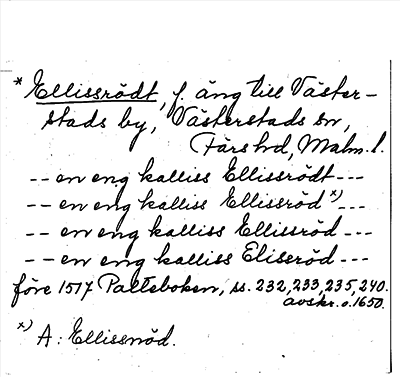 * Ellissrödt, f. äng till Väster-
stads by, Västerstads sn,
Färs hd, Malm. l.
-- en eng kalliss Ellissrödt ---
-- en eng kalliss Ellissröd x) ---
-- en eng kalliss Ellissröd ---
-- en eng kalliss Elisröd ---
före 1517 Palteboken, ss. 232, 233, 235, 240.
avskr. o. 1650.
x) A: Ellissnöd.